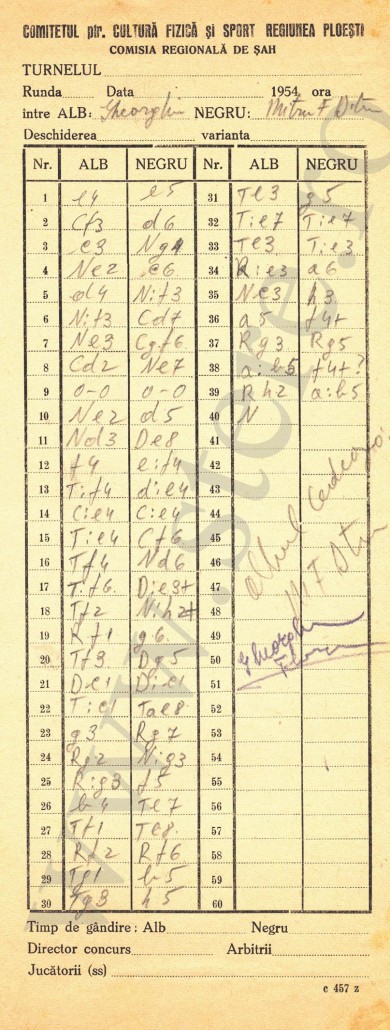 COMITETUL ptr. CULTURĂ FIZICĂ și SPORT REGIUNEA PLOEȘTI
COMISIA REGIONALĂ DE ȘAH
TURNELUL
Runda Data 1954, ora
intre ALB: Gheorghiu NEGRU: Mitru F Dtru
Deschiderea varianta
Nr. ALB NEGRU Nr. ALB NEGRU
1 e4 e5 31 Te3 g5
2 Cf3 d6 32 T:e7 T:e7
3 c3 Ng4 33 Te3 T:e3
4 Ne2 c6 34 R:e3 a6
5 d4 N:f3 35 Nc3 h3
6 N:f3 Cd7 36 a5 f4+
7 Ne3 Cgf6 37 Rg3 Rg5
8 Cd2 Ne7 38 a:b5 f4+?
9 0-0 0-0 39 Rh2 a:b5
10 Ne2 d5 40 N
11 Nd3 De8 41
12 f4 e:f4 42
13 T:f4 d:e4 43
14 C:e4 C:e4 44
15 T:e4 Cf6 45
16 Tf4 Nd6 46
17 T:f6 D:e3+ 47
18 Tf2 N:h2+ 48
19 Rf1 g6 49
20 Tf3 Dg5 50
21 De1 D:e1 51
22 T:e1 Tae8 52
23 g3 Rg7 53
24 Rg2 N:g3 54
25 R:g3 f5 55
26 b4 Te7 56
27 Tf1 Te8 57
28 Rf2 Rf6 58
29 Tg1 b5 59
30 Tg3 h5 60
Albul cedează
M F Dtru
Gheorghiu
Florin
Timp de gândire: Alb Negru
Director concurs Arbitrii
Jucătorii (ss)
c 457 z